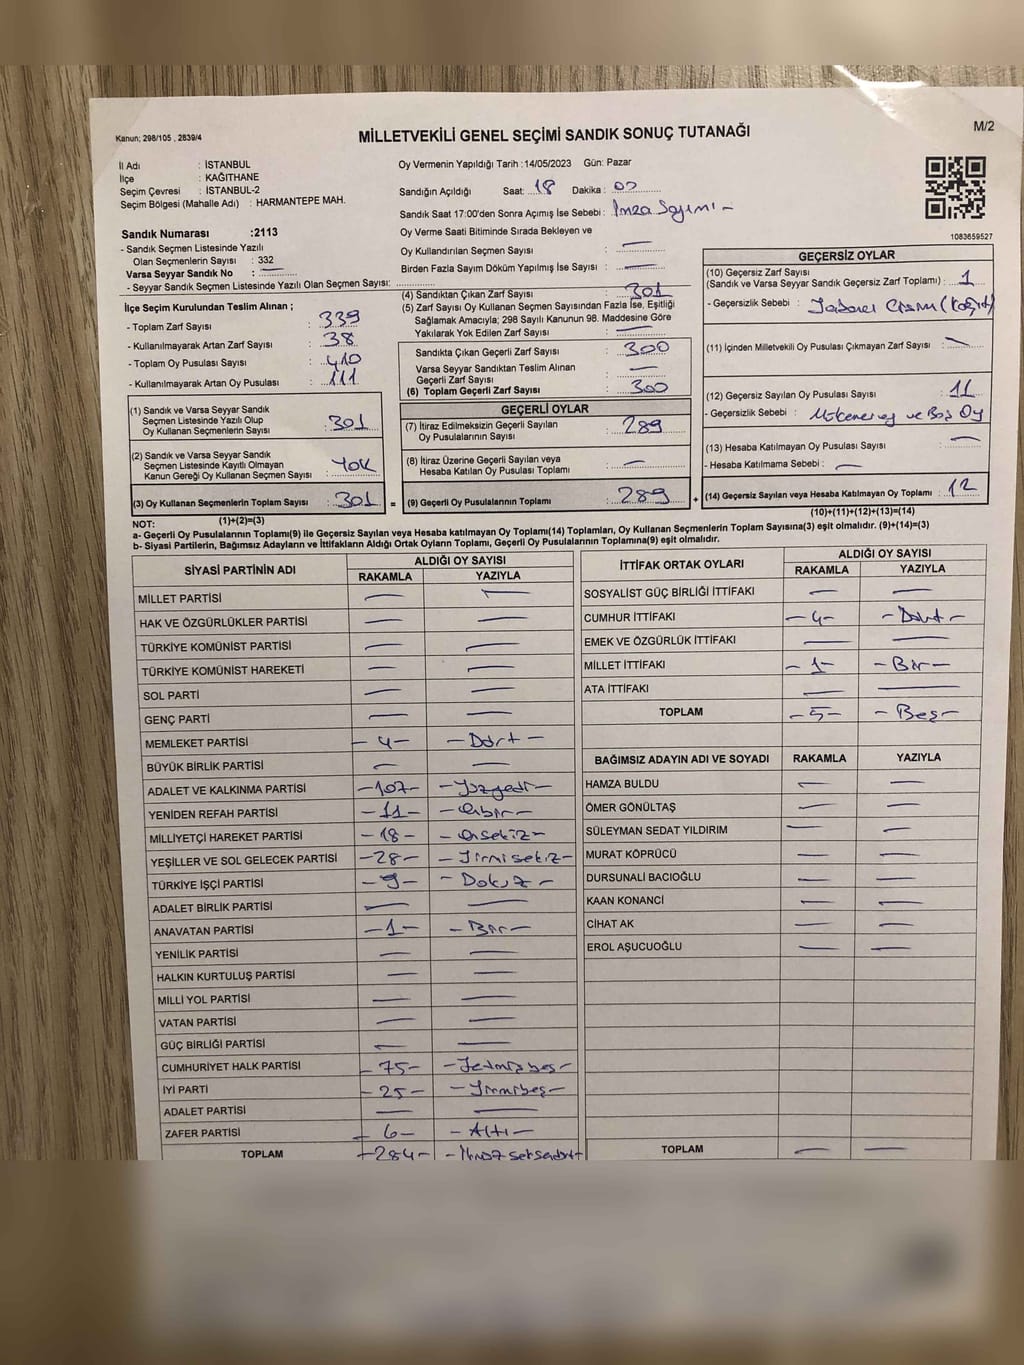 M/2
Kanun; 298/105 , 2839/4
MİLLETVEKİLİ GENEL SEÇİMİ SANDIK SONUÇ TUTANAĞI
İl Adı : İSTANBUL
İlçe : KAĞITHANE
Seçim Çevresi : İSTANBUL-2
Seçim Bölgesi (Mahalle Adı) : HARMANTEPE MAH.
Oy Vermenin Yapıldığı Tarih :14/05/2023 Gün: Pazar
Sandığın Açıldığı Saat: 18 Dakika : 00
Sandık Saat 17:00'den Sonra Açımış İse Sebebi : İmza Sayımı -
1083659527
Sandık Numarası :2113
- Sandık Seçmen Listesinde Yazılı
Olan Seçmenlerin Sayısı : 332
Varsa Seyyar Sandık No : —
- Seyyar Sandık Seçmen Listesinde Yazılı Olan Seçmen Sayısı:
Oy Verme Saati Bitiminde Sırada Bekleyen ve
Oy Kullandırılan Seçmen Sayısı : —
Birden Fazla Sayım Döküm Yapılmış İse Sayısı : —
İlçe Seçim Kurulundan Teslim Alınan ;
- Toplam Zarf Sayısı : 339
- Kullanılmayarak Artan Zarf Sayısı : 38
- Toplam Oy Pusulası Sayısı : 410
- Kullanılmayarak Artan Oy Pusulası : 111
(1) Sandık ve Varsa Seyyar Sandık
Seçmen Listesinde Yazılı Olup
Oy Kullanan Seçmenlerin Sayısı : 301
(2) Sandık ve Varsa Seyyar Sandık
Seçmen Listesinde Kayıtlı Olmayan
Kanun Gereği Oy Kullanan Seçmen Sayısı : YOK
(3) Oy Kullanan Seçmenlerin Toplam Sayısı : 301 =
(1)+(2)=(3)
(4) Sandıktan Çıkan Zarf Sayısı : 301
(5) Zarf Sayısı Oy Kullanan Seçmen Sayısından Fazla İse, Eşitliği
Sağlamak Amacıyla; 298 Sayılı Kanunun 98. Maddesine Göre
Yakılarak Yok Edilen Zarf Sayısı : —
Sandıkta Çıkan Geçerli Zarf Sayısı : 300
Varsa Seyyar Sandıktan Teslim Alınan
Geçerli Zarf Sayısı : —
(6) Toplam Geçerli Zarf Sayısı : 300
GEÇERLİ OYLAR
(7) İtiraz Edilmeksizin Geçerli Sayılan
Oy Pusulalarının Sayısı : 289
(8) İtiraz Üzerine Geçerli Sayılan veya
Hesaba Katılan Oy Pusulası Toplamı : —
(9) Geçerli Oy Pusulalarının Toplamı : 289 +
GEÇERSİZ OYLAR
(10) Geçersiz Zarf Sayısı
(Sandık ve Varsa Seyyar Sandık Geçersiz Zarf Toplamı) : 1
- Geçersizlik Sebebi : Yabancı Cisim (Kağıt)
(11) İçinden Milletvekili Oy Pusulası Çıkmayan Zarf Sayısı : —
(12) Geçersiz Sayılan Oy Pusulası Sayısı : 11
- Geçersizlik Sebebi : ve Boş Oy
(13) Hesaba Katılmayan Oy Pusulası Sayısı : —
- Hesaba Katılmama Sebebi : —
(14) Geçersiz Sayılan veya Hesaba Katılmayan Oy Toplamı : 12
(10)+(11)+(12)+(13)=(14)
NOT:
a- Geçerli Oy Pusulaları Toplamı(9) ile Geçersiz Sayılan veya Hesaba katılmayan Oy Toplamı(14) Toplamları, Oy Kullanan Seçmenlerin Toplam Sayısına(3) eşit olmalıdır. (9)+(14)=(3)
b- Siyasi Partilerin, Bağımsız Adayların ve İttifakların Aldığı Ortak Oyların Toplamı, Geçerli Oy Pusulalarının Toplamına(9) eşit olmalıdır.
SİYASİ PARTİNİN ADI ALDIĞI OY SAYISI
RAKAMLA YAZIYLA
MİLLET PARTİSİ — —
HAK VE ÖZGÜRLÜKLER PARTİSİ — —
TÜRKİYE KOMÜNİST PARTİSİ — —
TÜRKİYE KOMÜNİST HAREKETİ — —
SOL PARTİ — —
GENÇ PARTİ — —
MEMLEKET PARTİSİ -4- -Dört-
BÜYÜK BİRLİK PARTİSİ — —
ADALET VE KALKINMA PARTİSİ -107- -Yüzyedi-
YENİDEN REFAH PARTİSİ -11- -Onbir-
MİLLİYETÇİ HAREKET PARTİSİ -18- -Onsekiz-
YEŞİLLER VE SOL GELECEK PARTİSİ -28- -Yirmisekiz-
TÜRKİYE İŞÇİ PARTİSİ -9- -Dokuz-
ADALET BİRLİK PARTİSİ — —
ANAVATAN PARTİSİ -1- -Bir-
YENİLİK PARTİSİ — —
HALKIN KURTULUŞ PARTİSİ — —
MİLLİ YOL PARTİSİ — —
VATAN PARTİSİ — —
GÜÇ BİRLİĞİ PARTİSİ — —
CUMHURİYET HALK PARTİSİ -75- -Yetmişbeş-
İYİ PARTİ -25- -Yirmibeş-
ADALET PARTİSİ — —
ZAFER PARTİSİ -6- -Altı-
TOPLAM -284- -İkiyüzseksendört
İTTİFAK ORTAK OYLARI ALDIĞI OY SAYISI
RAKAMLA YAZIYLA
SOSYALİST GÜÇ BİRLİĞİ İTTİFAKI — —
CUMHUR İTTİFAKI -4- -Dört-
EMEK VE ÖZGÜRLÜK İTTİFAKI — —
MİLLET İTTİFAKI -1- -Bir-
ATA İTTİFAKI — —
TOPLAM -5- -Beş-
BAĞIMSIZ ADAYIN ADI VE SOYADI RAKAMLA YAZIYLA
HAMZA BULDU — —
ÖMER GÖNÜLTAŞ — —
SÜLEYMAN SEDAT YILDIRIM — —
MURAT KÖPRÜCÜ — —
DURSUNALİ BACIOĞLU — —
KAAN KONANCİ — —
CİHAT AK — —
EROL AŞUCUOĞLU — —
TOPLAM — —